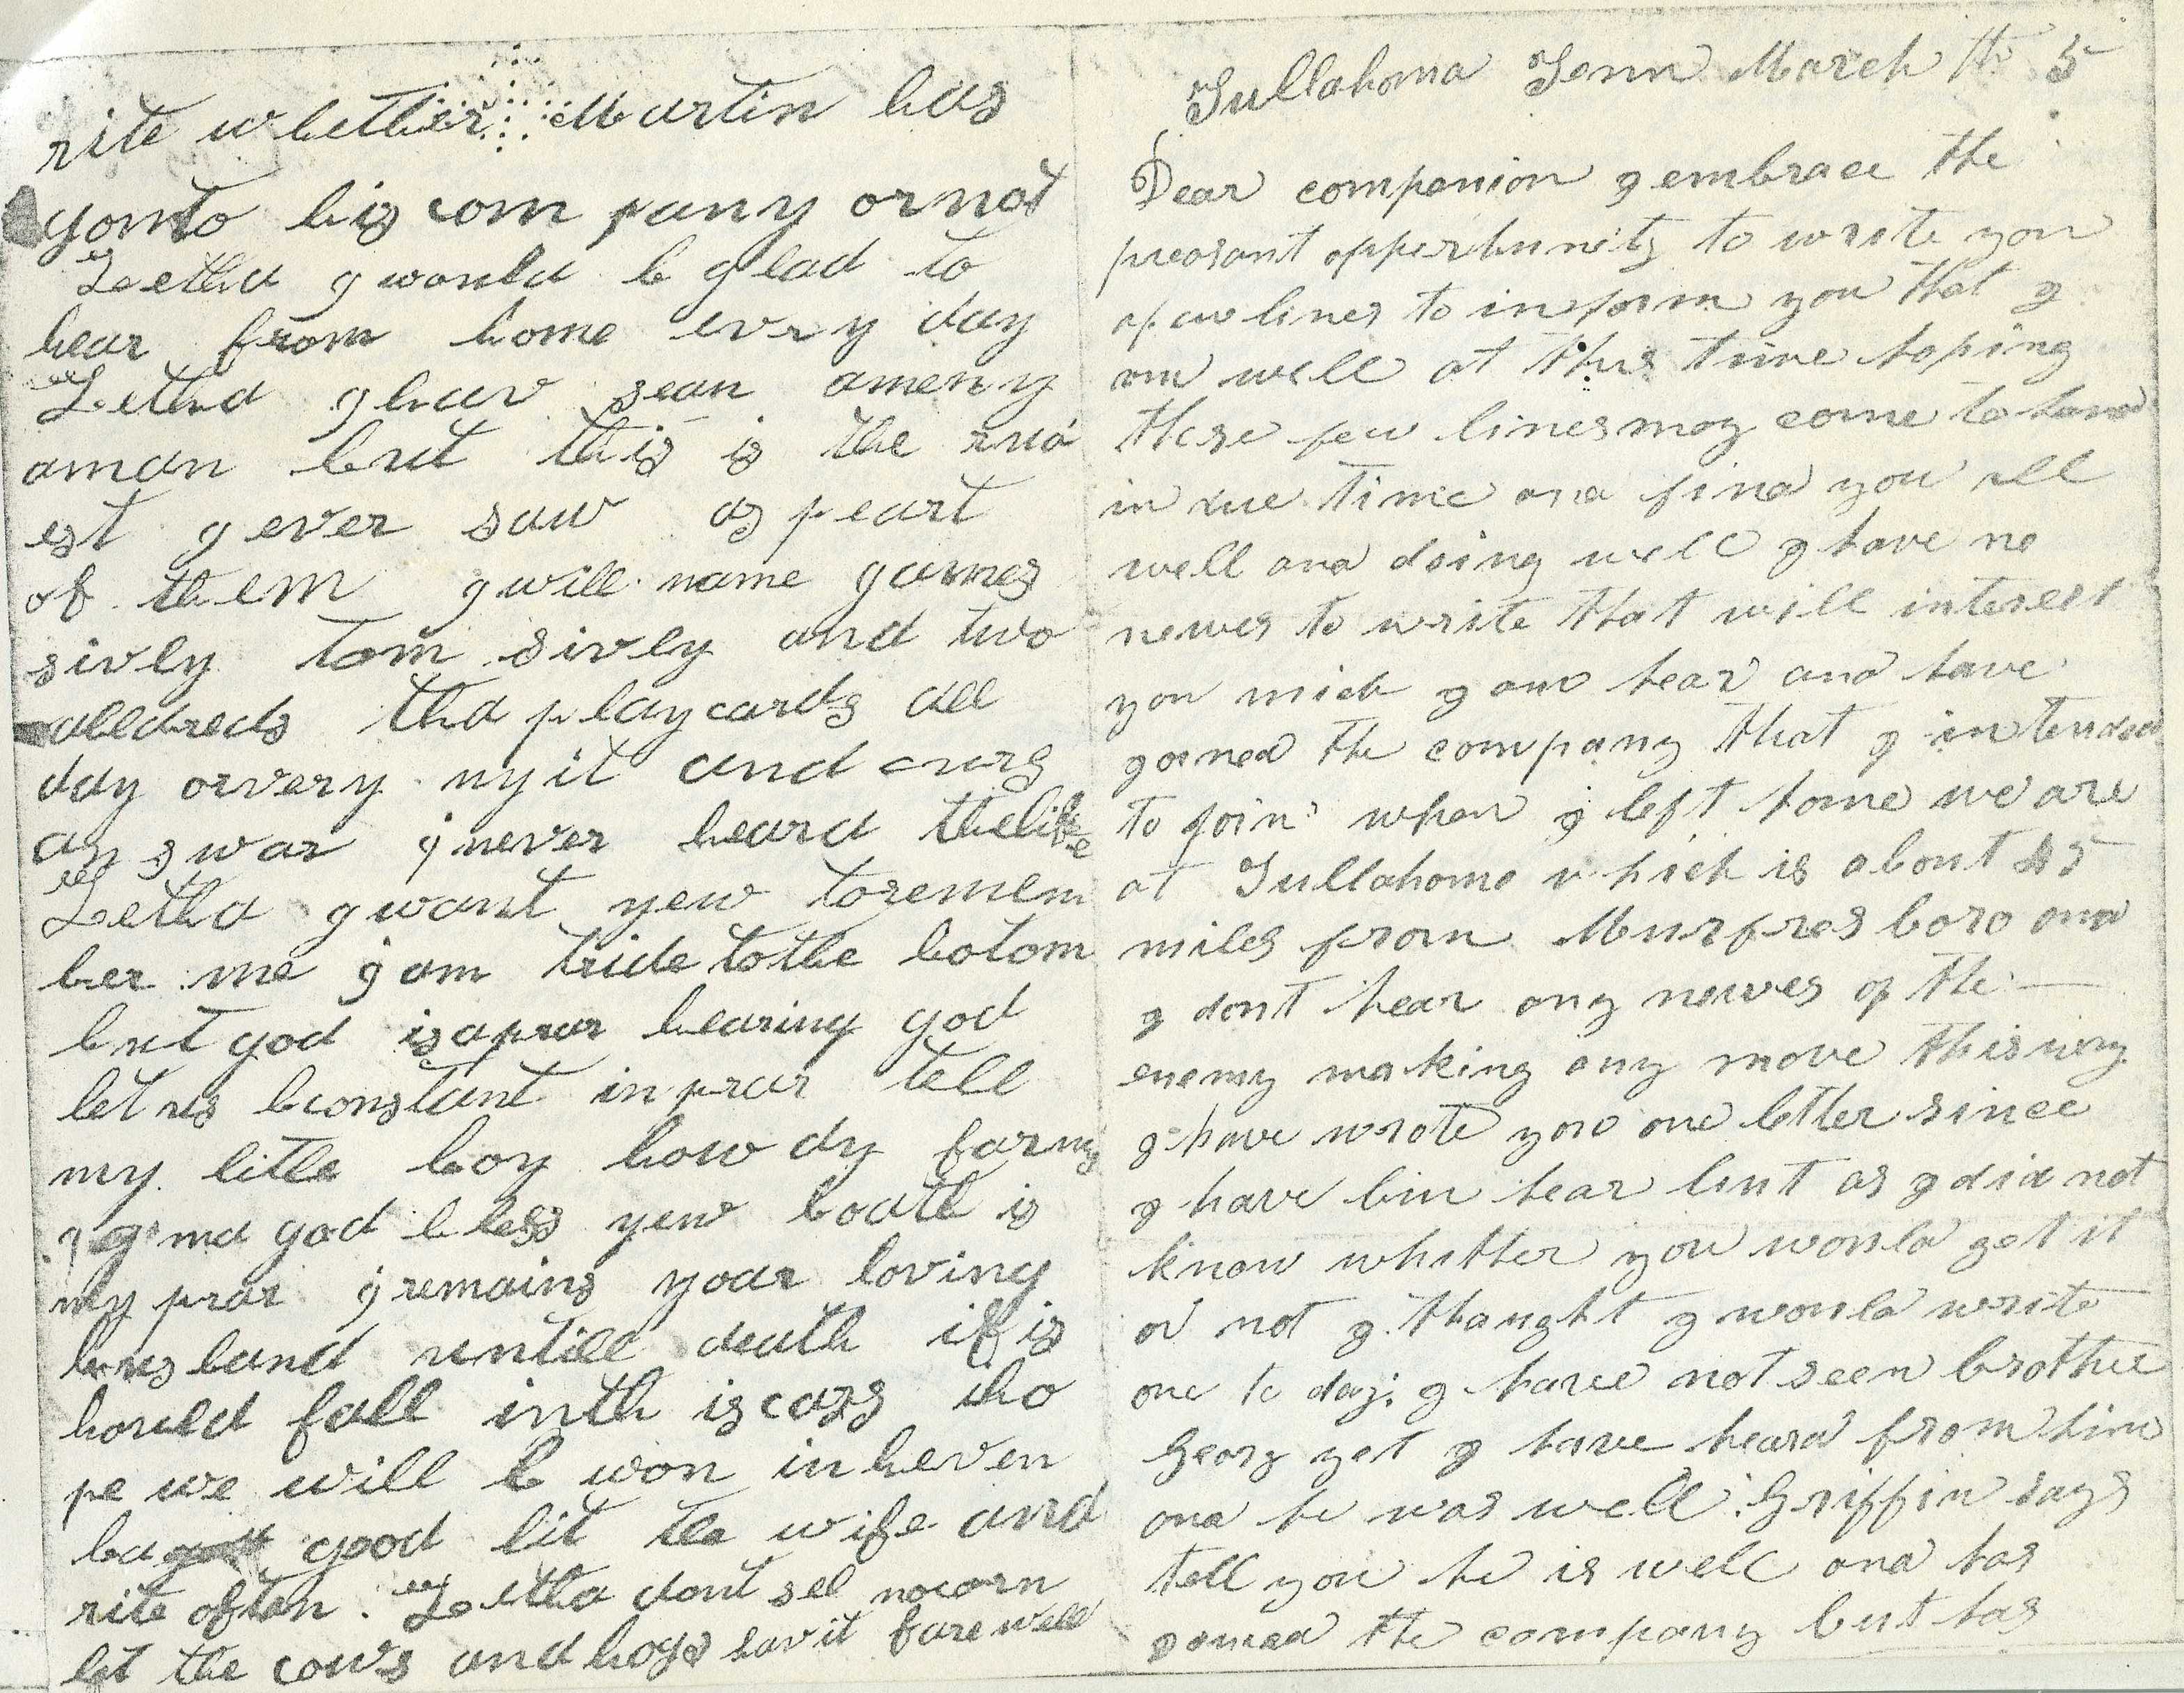 rite whether Martin has
gonto his com pany ornot
Letha g would b glad to
hear from home evry day
Letha g hav sean ameny
aman but this is the rud
est g ever saw as peart
of them g will name games
sivly tom sivly and two
alldreds tha play cards all
day orvery nyit and curs
an swar g never heard thelike
Letha g want yew toremem
ber me g am tride tothe botom
but god is a prar hearing god
let us bconstant in prar tell
my litle boy how dy farmy
god bless yew boath is
my prar g remains your loving
husband untill death if is
hould fall inth is cass iho
pe we will b won in heven
ba good lit tle wife and
rite often. Letha dont sel nocorn
let the cows and hogs havit farewell
Tullahoma Tenn March th 5
Dear companion g embrace the
preasant oppertunity to wrote you
a few lines to inform you that g
am well at this time hoping
these few lines may come to hand
in due time and find you all
well and doing well g have no
newes to write that will interest
you mich g am hear and have
goined the company that g intended
to goin when g left home we are
at Tullahoma which is about 45
miles from Murfres boro and
g dont hear any newes of the
enemy making any move this way
g have wrote you one letter since
g have bin hear but as g did not
know whether you would get it
or not g thaught g would write
one to day; g have not seen brother
Georg yet g have heard from him
and he was well Griffin says
tell you he is well and has
gomed the company but has